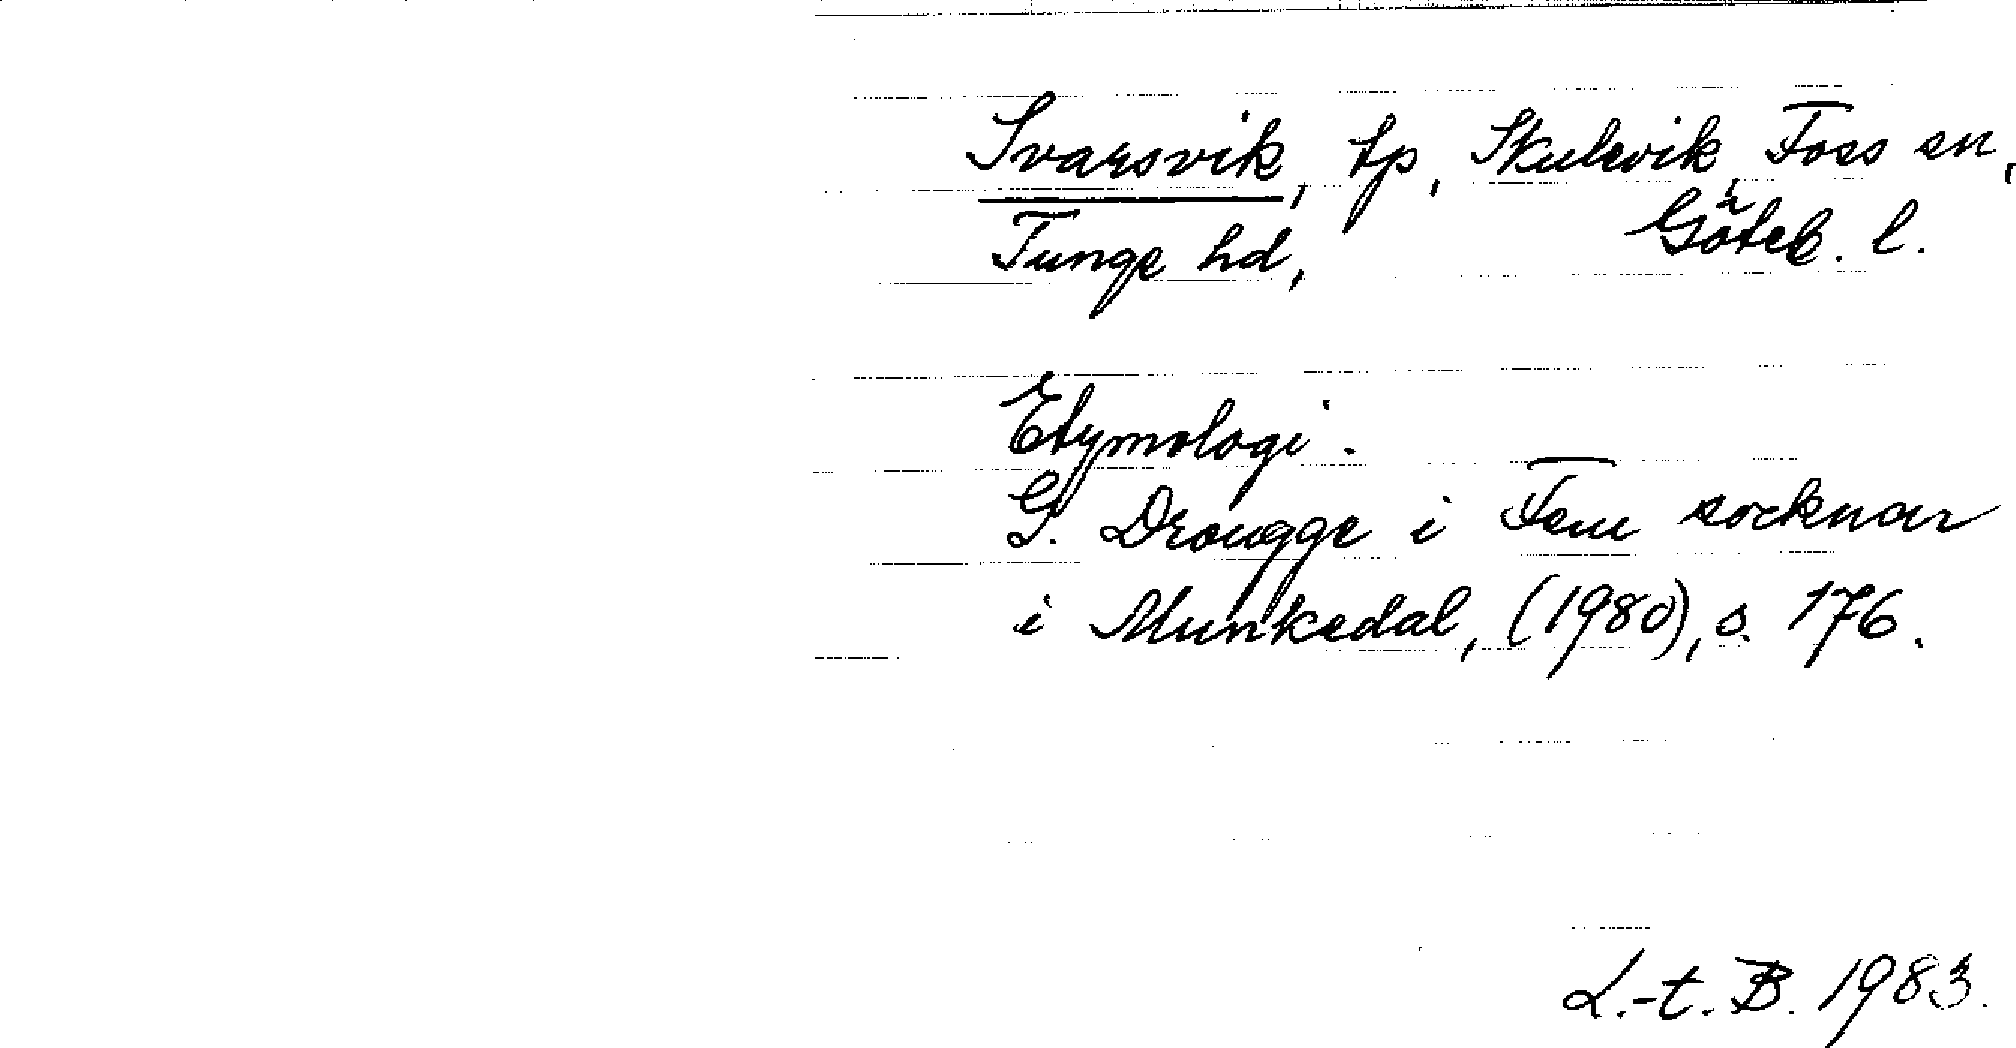 Svarsvik, tp, Skulevik, Foss sn,
Tunge hd, Göteb. l.
Etymologi.
G. Drougge i Fem socknar
i Munkedal, (1980), s. 176.
L.-t. B. 1983.